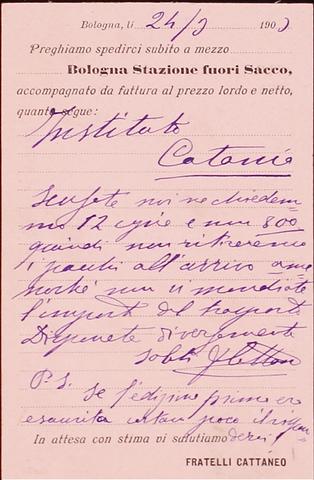 Bologna, li 24/3 1903
Preghiamo spedirci subito a mezzo
Bologna Stazione fuori Sacco,
accompagnato da fattura al prezzo lordo e netto,
quanto segue:
Instituto
Catania
Scusate noi ne chiedem
mo 12 copie e non 800
quindi non ritireremo
i pacchi all'arrivo a me
nochè non ci mandiate
l'import del trasporto
Disponete diversamente
P.S. Se l'edizione prima era
esaurita costava poco il rispon-
In attesa con stima vi salutiamo derci
FRATELLI CATTANEO